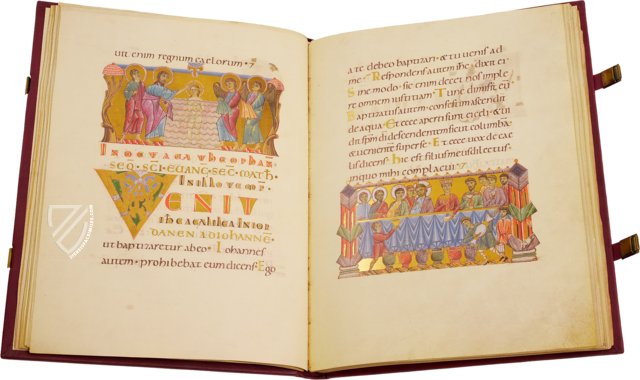 uit enim regnum caelorum · 7
IN OCTAVA THEOPHAN
SEQ · SCI EVANG SEC MATH ·
In illo tempr
VENIT
ihc a galilea in ior
danen ad iohanne
ut baptizaretur ab eo · Iohannes
autem · prohibebat eum dicens · Ego
a te debeo baptizari · & tu uenis ad
me · Respondens autem ihc · dixit ei ·
Sine modo · sic enim decet nos imple
re omnem iustitiam · Tunc dimisit eu ·
Baptizatus autem · confestim ascendit
de aqua · Et ecce aperti sunt ei caeli · & ui
dit spm di descendentem sicut columba ·
& uenientem super se · Et ecce uox de cae
lis dicens · Hic est filius meus dilectus ·
in quo mihi complacui · 7